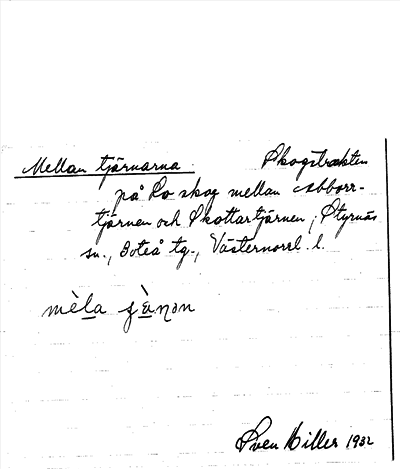 Mellan tjärnarna. Skogstrakten
på Lo skog mellan Abborr-
tjärnen och Skottartjärnen, Styrnäs
sn., Boteå tg., Västernorrl. l.
mèla sànon
Sven Hiller 1932